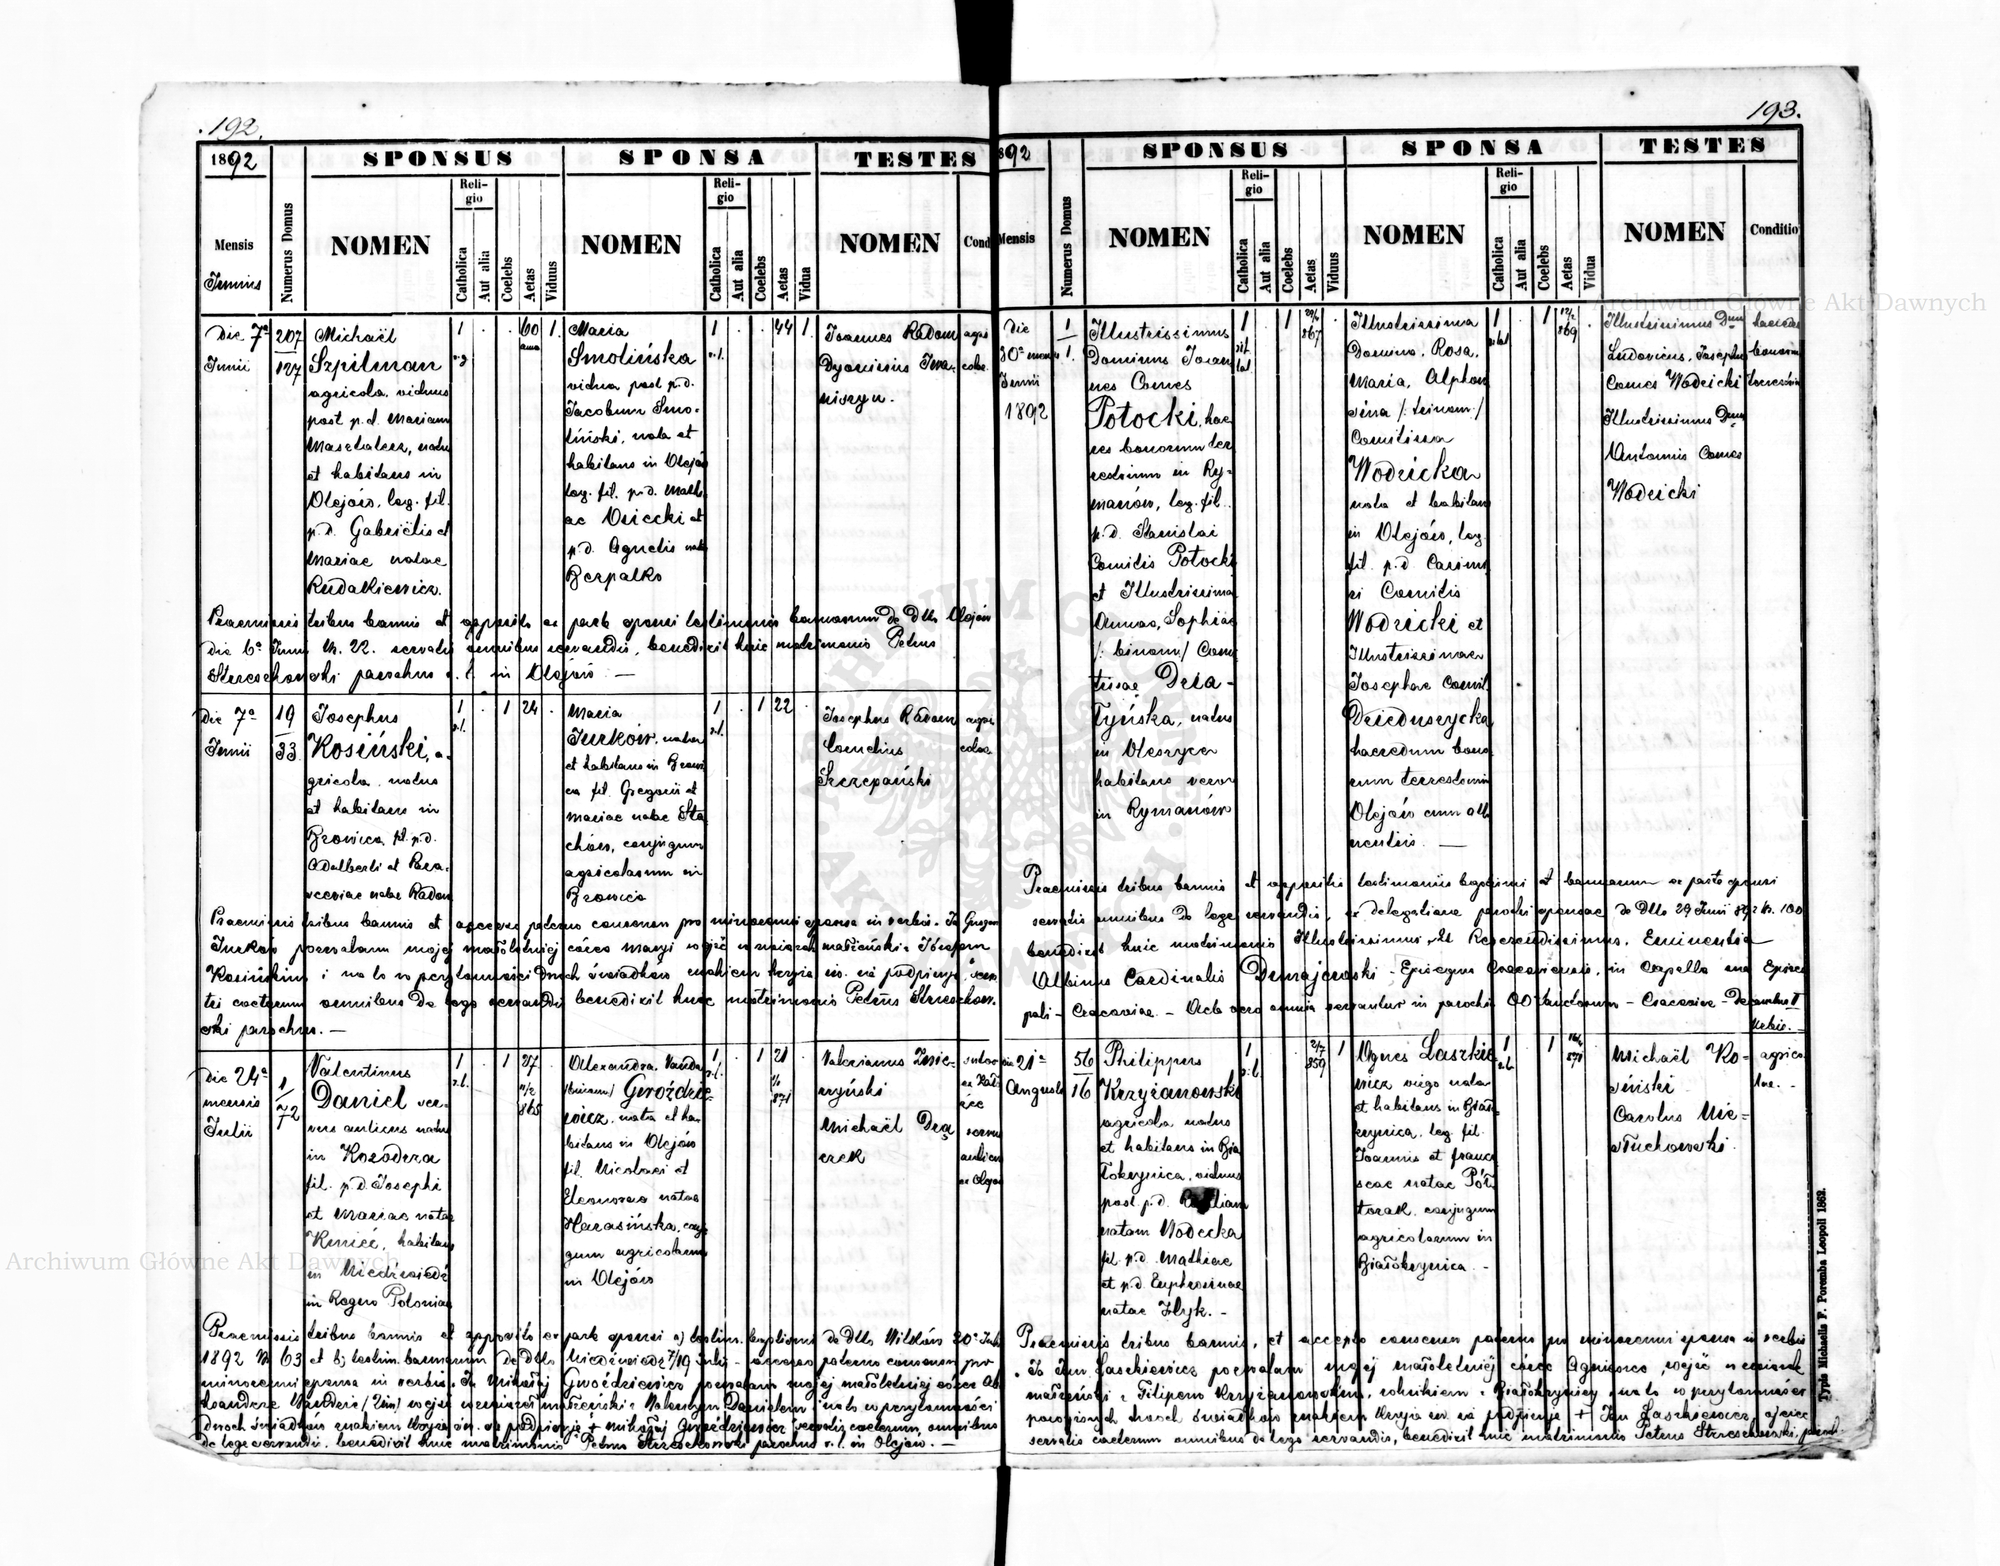 192.
1892
SPONSUS
SPONSA
TESTES
Mensis
Junius
Numerus Domus
NOMEN
Religio
Catholica
Aut alia
Coelebs
Aetas
Viduus
NOMEN
Religio
Catholica
Aut alia
Coelebs
Aetas
Vidua
NOMEN
Cond
Die 7ª
Junii
207
127
Michaël
Szpilman
agricola, viduus
post p.d. Mariam
natus
et habitans in
Olejów, leg. fil.
p.d. Gabriëlis et
Mariae natae
Rudakiewicz.
1
60
1.
Maria
Smolińska
vidua post p.d.
Jacobum Smo-
liński, nata et
habitans in Olejów
leg. fil. p.d. Math
ae Osiecki et
p.d. Agnetis nata
Berpalko
1
44
1.
Joannes Radom
Dyonisius Iwa-
niszyn.
agri
colae
Praemissis tribus bannis et apposito ex parte sponsi testimonio bannorum de dtto Olejów
die 6ª Junii N. 22. servatis omnibus servandis, benedixit huic matrimonio Petrus
Streschowski parochus r. l. in Olejów —
Die 7ª
Junii
19
33
Josephus
Kosiński, a-
gricola, natus
et habitans in
Bronica, fil. p.d.
Adalberti et Para-
sceviae natae Radom
1
r.l.
1
24
Maria
Jurków, nata
et habitans in Broni
ca fil. Gregorii et
Mariae natae Sta
chów, conjugum
agricolarum in
Bronica
1
r.l.
1
22
Josephus Radom
Cornelius
Szczepański
agri
colae
Praemissis tribus bannis et accepto paterno consensu pro minorenni sponsa in verbis: Ja Gregorz
Jurków pozwalam mojej małoletniej córce Maryi wejść w związek małżeński z Józefem
Kosińskim i na to w przytomności dwóch świadków znakiem krzyża św. się podpisuję.
caeterum omnibus de lege servandis benedixit huic matrimonio Petrus Streschow-
ski parochus. —
Die 24ª
mensis
Julii
1
72
Valentinus
Daniel ser-
vus aulicus natus
in Kozodrza
fil. p.d. Josephi
et Mariae natae
Kmieć, habitans
in Niedźwiedź
in Regno Poloniae
1
r.l.
1
27
11/2
865
Alexandra Vanda
(binom) Gwoździe-
wicz, nata et ha-
bitans in Olejów
fil. Nicolaei et
Eleonorae natae
Harasińska, conju
gum agricolarum
in Olejów
1
r.l.
1
21
871
Valerianus Zwie-
rzyński
Michaël Dra
czek
sutor
servus
aulicus
ex Olejów
Praemissis tribus bannis et apposito ex parte sponsi a) testim. baptismi de dtto Witków 20ª Julii
1892 N 63 et b) testim. bannorum de dtto Niedźwiedź 7/19 Julii accesso paterno consensu pro
minorenni sponsa in verbis: Ja Mikołaj Gwoździewicz pozwalam mojej małoletniej córce Ale
ksandrze Vandzie (2im) wejść w związek małżeński z Valentym Danielem i na to w przytomności
dwóch świadków znakiem krzyża św. się podpisuję + Mikołaj Gwoździewicz servatis caeterum omnibus
de lege servandis, benedixit huic matrimonio Petrus Streschowski parochus r. l. in Olejów. —
193.
892
SPONSUS
SPONSA
TESTES
Mensis
Numerus Domus
NOMEN
Religio
Catholica
Aut alia
Coelebs
Aetas
Viduus
NOMEN
Religio
Catholica
Aut alia
Coelebs
Aetas
Vidua
NOMEN
Conditio
Die
30ª mensis
Junii
1892
1
1.
Illustrissimus
Dominus Joan
nes Comes
Potocki, hae
res bonorum ter
restrium in Ry-
manów, leg. fil.
p.d. Stanislai
Comitis Potocki
et Illustrissima
Annae, Sophiae
/: binom:/ Comi
tissae Dzia-
łyńska, natus
in Oleszyce
habitans vero
in Rymanów
1
rit.
lat.
1
867
Illustrissima
Domina, Rosa,
Maria, Alphon
sina /: trinom:/
Comitissa
Wodzicka
nata et habitans
in Olejów, leg.
fil. p.d. Casimi
ri Comitis
Wodzicki et
Illustrissimae
Josephae Comit.
Dzieduszycka
haeredum bono
rum terrestrium
Olejów cum atti
nentiis. —
1
r. lat
1
869
Illustrissimus Dnus
Ludovicus, Josephus
Comes Wodzicki
Illustrissimus Dnus
Antonius Comes
Wodzicki
haeredes
bonorum
terrestrium
Praemissis tribus bannis et appositis testimoniis baptismi et bannorum ex parte sponsi
servatis omnibus de lege servandis, ex delegatione parochi sponsae de dtto 29 Junii 892 N. 100
benedixit huic matrimonio Illustrissimus et Reverendissimus, Eminentia
Albinus Cardinalis Dunajewski - Episcopus Cracoviensis, in Capella sua Episco
pali - Cracoviae - Acta vero omnia servantur in parochia OO Sanctorum - Cracoviae -
Die 21ª
Augusti
56
16
Philippus
Krzyżanowski
agricola natus
et habitans in Bia
łokrynica, viduus
post p.d.
natam Wodecka
fil. p.d. Mathiae
et p.d. Euphrosinae
natae Hyk. —
1
r.l.
27/7
859
1
Agnes Laszkie
wicz virgo nata
et habitans in Biało-
krynica, leg. fil.
Joannis et Franci
scae natae Pół-
torak, conjugum
agricolarum in
Białokrynica. —
1
r.l.
1
871
Michaël Ko-
siński
Carolus Nie-
słuchowski.
agrico
lae. —
Praemissis tribus bannis, et accepto consensu paterno pro minorenni sponsa in verbis
Ja Jan Laszkiewicz pozwalam mojej małoletniej córce Agnieszce, wejść w związek
małżeński z Filipem Krzyżanowskim, rolnikiem z Białokrynicy, na to w przytomności
powyższych dwóch świadków znakiem krzyża św. się podpisuję + Jan Laszkiewicz, ojciec
servatis caeterum omnibus de lege servandis, benedixit huic matrimonio Petrus Streschowski, paroch
Typis Michaelis F. Poremba Leopoli 1862.
Archiwum Główne Akt Dawnych
Archiwum Główne Akt Dawnych